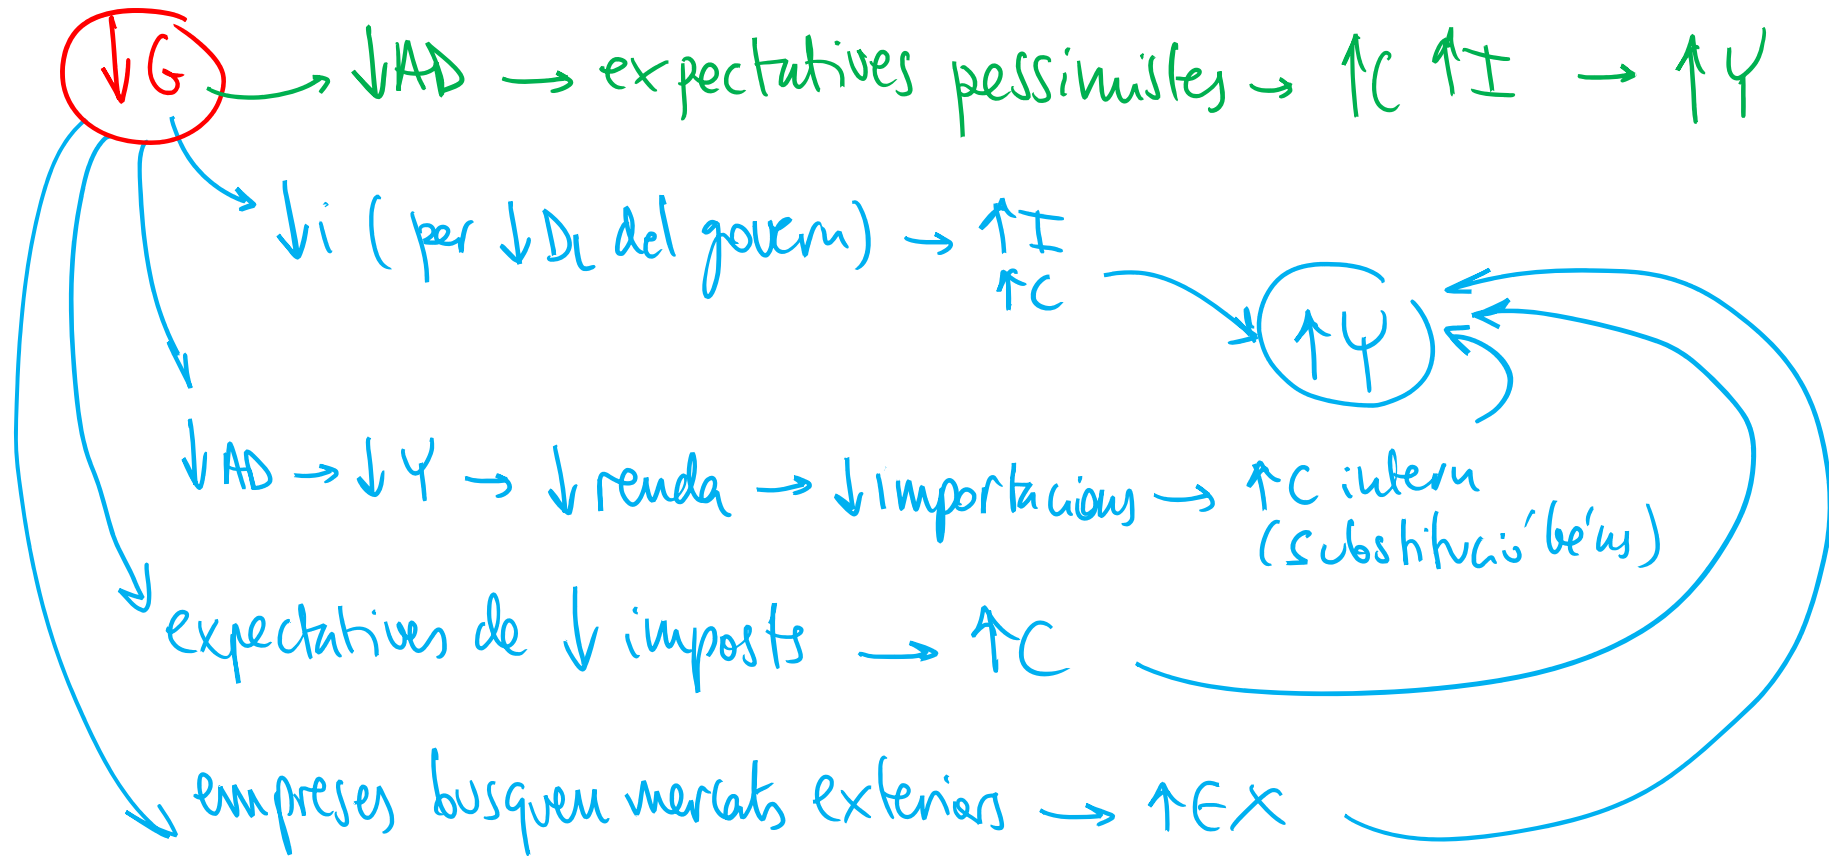 ↓G → ↓AD → expectatives pessimistes → ↑C ↑I → ↑Y
↓i (per ↓DL del govern) → ↑I
↑C
↑Y
↓AD → ↓Y → ↓renda → ↓importacions → ↑C intern
(substitució béns)
expectatives de ↓ imposts → ↑C
empreses busquen mercats exteriors → ↑EX